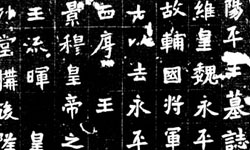 陽平王墓誌
維皇魏永平
故輔國將軍
以去永平
王
景穆皇帝之
王流暉 皇
堂構